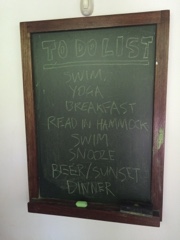 TO DO LIST
SWIM.
YOGA
BREAKFAST
READ IN HAMMOCK
SWIM
SNOOZE
BEER/SUNSET
DINNER